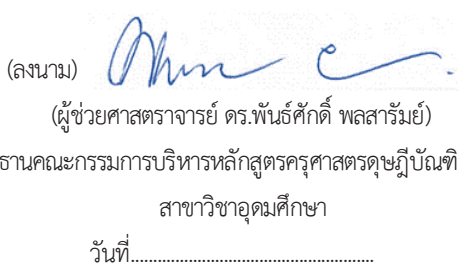 (ลงนาม)
(ผู้ช่วยศาสตราจารย์ ดร.พันธ์ศักดิ์ พลสารัมย์)
ธานคณะกรรมการบริหารหลักสูตรครุศาสตรดุษฎีบัณฑิ
สาขาวิชาอุดมศึกษา
วันที่......................................................